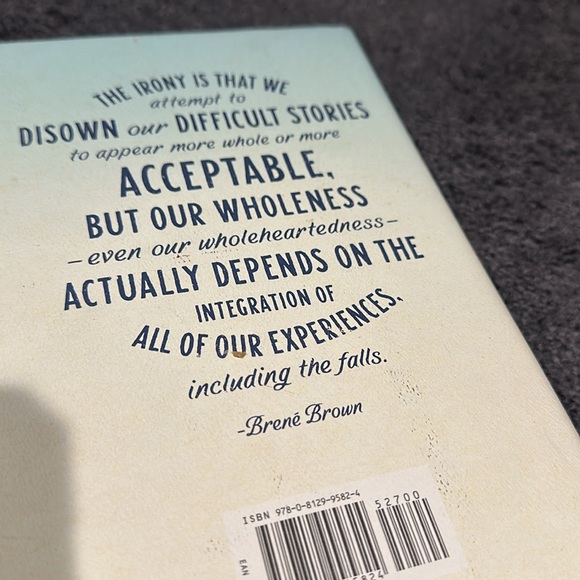 THE IRONY IS THAT WE
attempt to
DISOWN our DIFFICULT STORIES
to appear more whole or more
ACCEPTABLE,
BUT OUR WHOLENESS
–even our wholeheartedness–
ACTUALLY DEPENDS ON THE
INTEGRATION OF
ALL OF OUR EXPERIENCES,
including the falls.
-Brené Brown
ISBN 978-0-8129-9582-4
52700
EAN